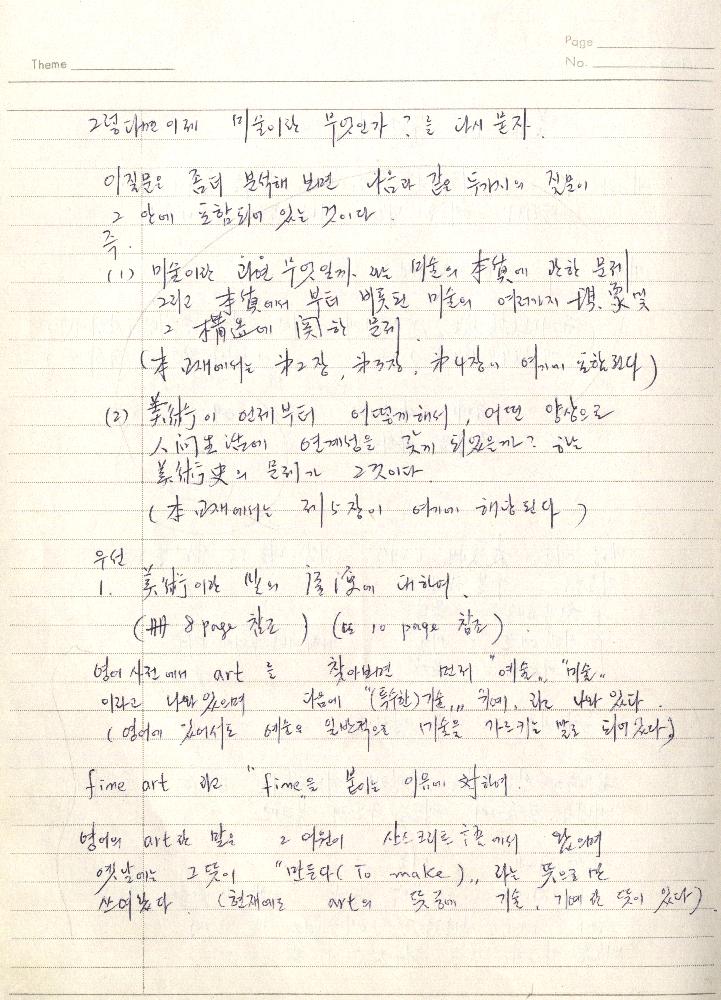 Page
Theme
No.
그렇다면 이제 미술이란 무엇인가? 를 다시 묻자.
이질문은 좀더 분석해 보면 다음과 같은 두가지의 질문이
그 안에 포함되어 있는 것이다.
즉.
(1) 미술이란 과연 무엇일까. 라는 미술의 本質에 관한 문제
그리고 本質에서 부터 비롯된 미술의 여러가지 現象및
그 構造에 関한 문제.
(本 교재에서는 第2장, 第3장, 第4장이 여기에 포함된다)
(2) 美術이 언제부터 어떻게해서, 어떤 양상으로
人间生活에 연계성을 갖게 되었을까? 하는
美術史의 문제가 그것이다.
(本 교재에서는 제5장이 여기에 해당된다)
우선
1. 美術이란 말의 에 대하여.
( 8 page 참조) ( 10 page 참조)
영어 사전에서 art 를 찾아보면 먼저 "예술„ "미술„
이라고 나와있으며 다음에 "(특수한)기술„, 기예, 라고 나와 있다.
(영어에 있어서도 예술은 일반적으로 미술을 가르키는 말로 되어있다)
fine art 라고 "fine"을 붙이는 이유에 対하여.
영어의 art란 말은 그 어원이 산스크리트 言語에서 왔으며
옛날에는 그 뜻이 "만든다(To make)„ 라는 뜻으로만
쓰여졌다. (현재에도 art의 뜻중에 기술, 기예란 뜻이 있다)